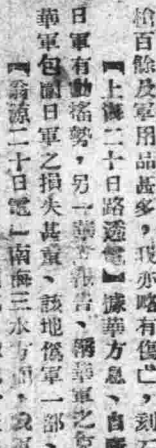 槍百餘及軍用品甚多，我亦略有傷亡，刻
【上海二十日路透電】據華方息、自
日軍有動搖勢，另一華方報告、稱華軍之
華軍包圍日軍之損失甚重、該地僞軍一部、
【翁源二十日電】南海三水方面，我軍